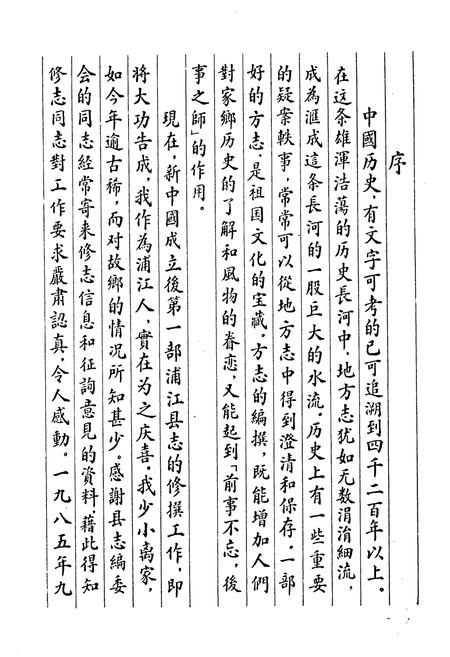 序
中國历史，有文字可考的已可追溯到四千二百年以上。
在这条雄渾浩荡的历史長河中，地方志犹如无数涓涓细流，
成為滙成這条長河的一股巨大的水流。历史上有一些重要
的疑案軼事，常常可以從地方志中得到澄清和保存。一部
好的方志，是祖国文化的宝藏。方志的編撰，既能增加人們
對家鄉历史的了解和風物的眷恋，又能起到「前事不忘，後
事之師」的作用。
現在，新中國成立後第一部浦江县志的修撰工作，即
将大功告成，我作為浦江人，實在为之庆喜。我少小离家，
如今年逾古稀，而对故鄉的情况所知甚少。感謝县志編委
会的同志經常寄来修志信息和征詢意見的資料，藉此得知
修志同志對工作要求嚴肃認真，令人感動。一九八五年九